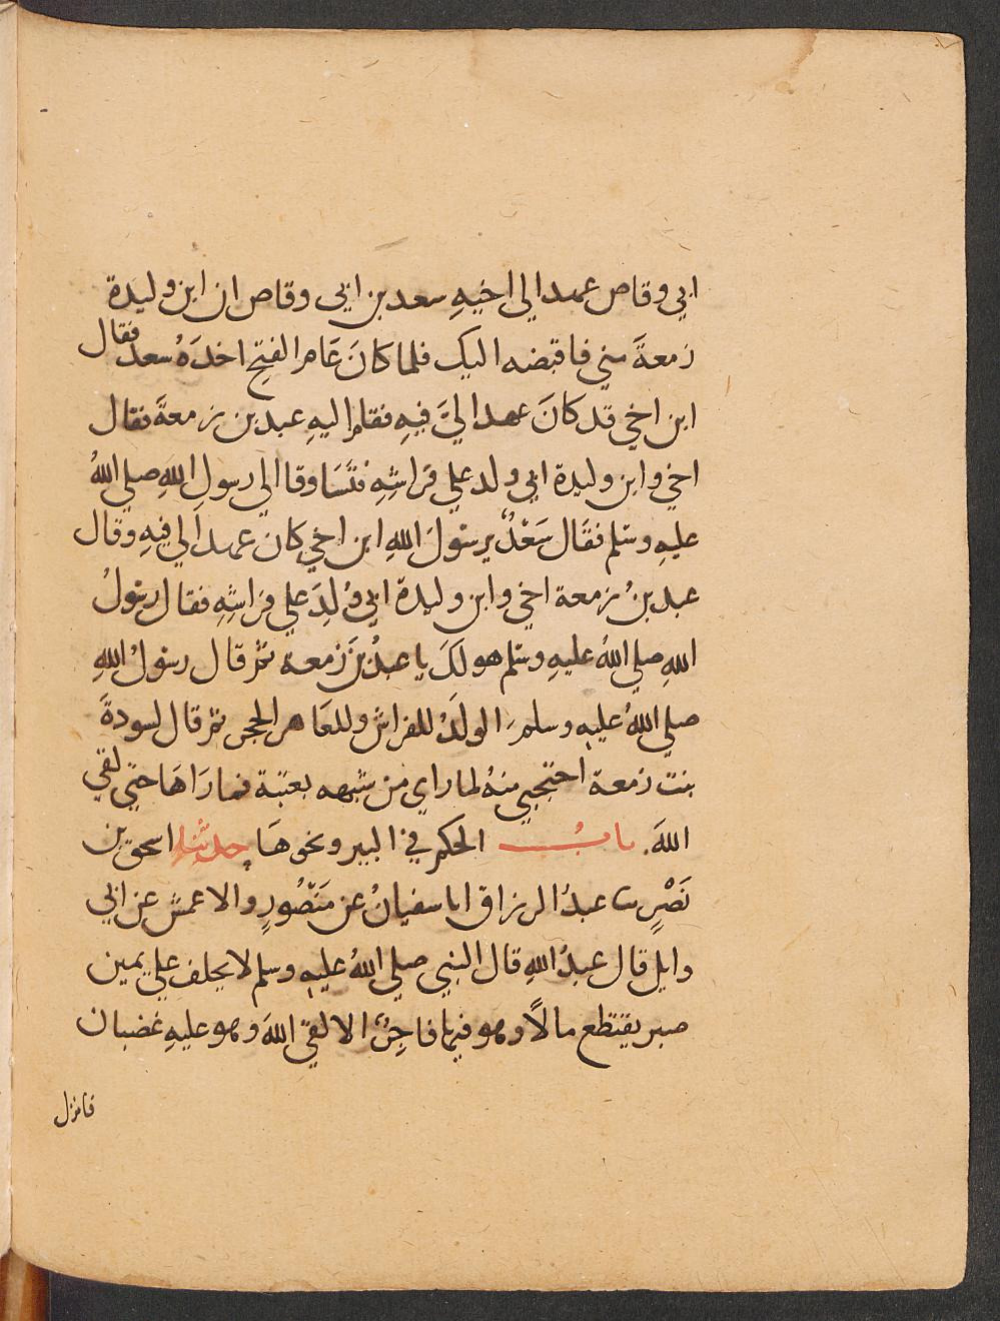 ابي وقاص عهد الي اخيهِ سعد بن ابي وقاص ان ابن وليدة
زمعةَ مني فاقبضه اليك فلما كانَ عَام الفتحِ اخذَهُ سعد فقال
ابن اخي قد كانَ عهد اليَّ فيهِ فقام اليهِ عبد بن زمعةَ فقال
اخي وابن وليدة ابي ولد علي فَراشِهِ فتَسَاوقا الي رسولِ اللهِ صلي اللهُ
عليهِ وسَلم فقَال سَعْدٌ يرسُولَ اللهِ ابن اخي كان عهد الي فيهِ وقال
عبد بنُ زمعة اخي وابن وليدة ابي وُلِدَ علي فراشِهِ فقال رسُولُ
اللهِ صلي اللهُ عليهِ وسَلم هو لكَ يا عبدُ بنَ زمعة ثم قال رسُولُ اللهِ
صلي اللهُ عليهِ وسلمَ الولَدُ للفراش وللعَاهر الحجر ثم قال لسودةَ
بنت زمعة احتجبي منهُ لما راي من شبهه بعتبة فما رَاهَا حتي لقي
اللهَ. بابُ الحكم في البير ونحوهَا حدثنا اسحق بن
نَصْرٍ نا عبدُ الرزاق انا سفيانُ عن مَنْصُورٍ والاعمش عن ابي
وايل قال عبدُ اللهِ قال النبي صلي اللهُ عليهِ وسلم لا يحلف علي يمين
صبر يقتطع مالاً وهو فيها فاجِرٌ الا لقي اللهَ وهو عليهِ غضبان
فانزل